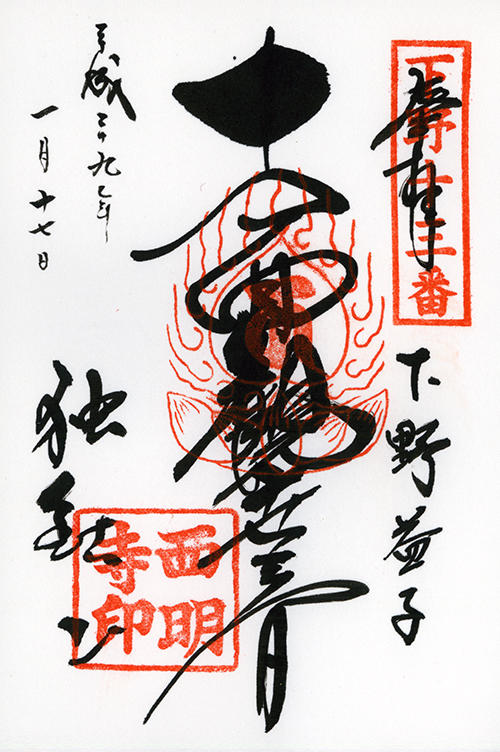 奉拝
下野廿三番
下野益子
十一面観世音
独鈷山
西明
寺印
平成二十九年
一月十七日